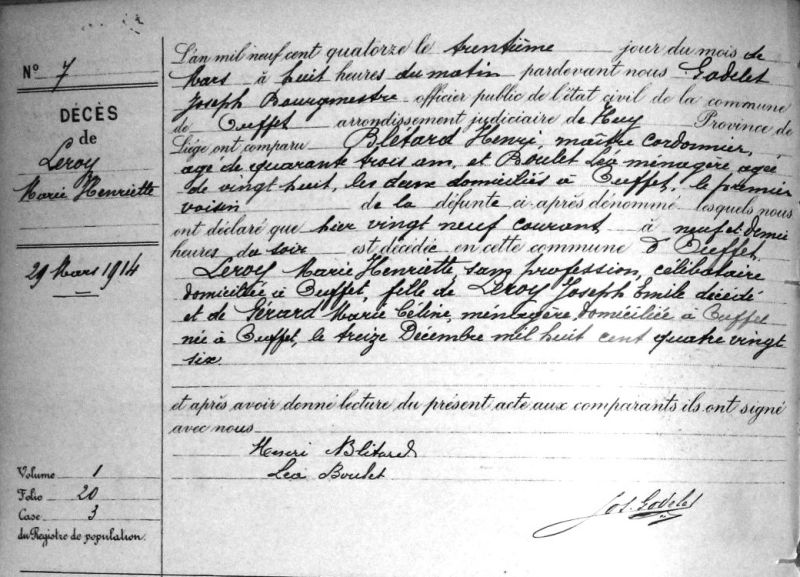 Nº 7
DÉCÈS
de
Leroy
Marie Henriette
29 Mars 1914
Volume 1
Folio 20
Case 3
du Registre de population.
L'an mil neuf cent quatorze le trentième jour du mois de
Mars à huit heures du matin pardevant nous Godelet
Joseph Bourgmestre officier public de l'état civil de la commune
de Ouffet arrondissement judiciaire de Huy Province de
Liége ont comparu Blétard Henri, maître cordonnier,
agé de quarante trois ans, et Boulet Léa ménagère, agée
de vingt huit, les deux domiciliés à Ouffet, le premier
voisin de la défunte ci-après dénommé lesquels nous
ont déclaré que hier vingt neuf courant à neuf et demie
heures du soir est décédée en cette commune d'Ouffet
Leroy Marie Henriette, sans profession, célibataire
domiciliée à Ouffet, fille de Leroy Joseph Emile décédé
et de Sérard Marie Céline, ménagère, domiciliée à Ouffet
née à Ouffet, le treize Décembre mil huit cent quatre vingt
six.
et après avoir donné lecture du présent acte aux comparants ils ont signé
avec nous
Henri Blétard
Lea Boulet
Jos. Godelet